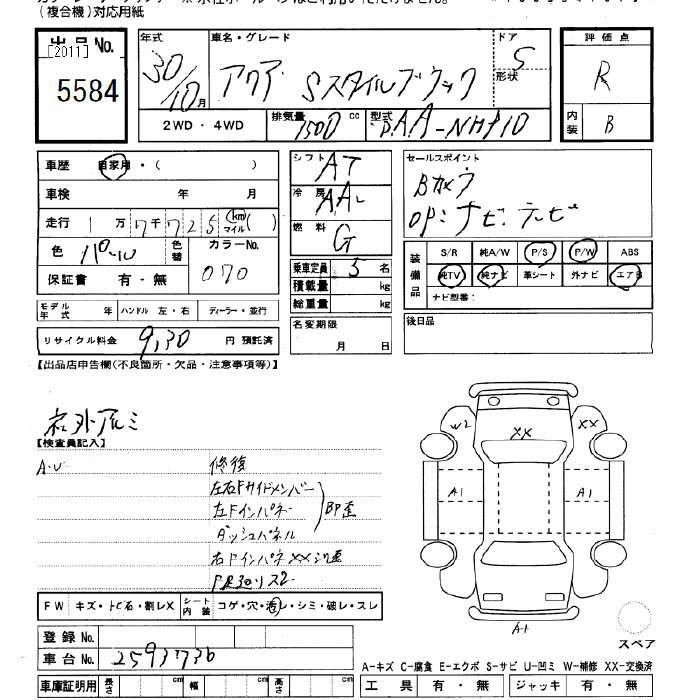 (複合機)対応用紙
出品No.
[2011]
5584
年式
30/10月
車名・グレード
アクア Sスタイルブラック
ドア
5
形状
評価点
R
内装
B
2WD・4WD
排気量
1500 cc
型式
DAA-NHP10
車歴 自家用・( )
車検 年 月
走行 1万7千725 km マイル( )
色 パール
色替
カラーNo.
070
保証書 有・無
モデル年式 年 ハンドル 左・右 ディーラー・並行
リサイクル料金 9,30 円 預託済
シフト
AT
冷房
AAC
燃料
G
乗車定員 5 名
積載量 kg
総重量 kg
名変期限
月 日
セールスポイント
Bカメラ
OP:ナビ・テレビ
装備品
S/R 純A/W P/S P/W ABS
純TV 純ナビ 革シート 外ナビ エアB
ナビ型番:
後日品
【出品店申告欄(不良箇所・欠品・注意事項等)】
社外アルミ
【検査員記入】
A・U
修復
左右Fサイドメンバー
左Fインパネ
ダッシュパネル
BP歪
右Fインパネ XX
W2
XX
XX
A1
A1
A1
スペア
FW キズ・トビ石・割レX
シート内装
コゲ・穴・汚レ・シミ・破レ・スレ
登録No.
車台No. 2593736
車庫証明用 長さ cm 幅 cm 高さ cm
A-キズ C-腐食 E-エクボ S-サビ U-凹ミ W-補修 XX-交換済
工具 有・無 ジャッキ 有・無